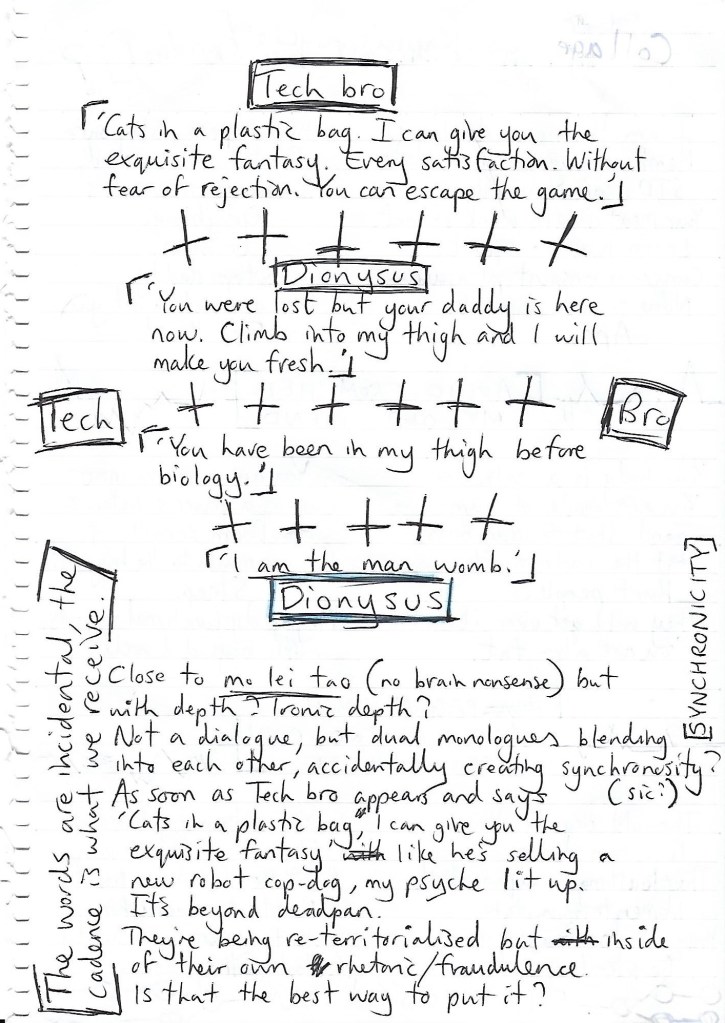 Collage
Tech bro
「'Cats in a plastic bag. I can give you the
exquisite fantasy. Every satisfaction. Without
fear of rejection. You can escape the game.'」
Dionysus
「'You were lost but your daddy is here
now. Climb into my thigh and I will
make you fresh.'」
Tech
Bro
「'You have been in my thigh before
biology.'」
「'I am the man womb.'」
Dionysus
[SYNCHRONICITY]
The words are incidental, the
cadence is what we receive.
Close to mo lei tao (no brain nonsense) but
with depth? Ironic depth?
Not a dialogue, but dual monologues blending
into each other, accidentally creating synchronosity?
As soon as Tech bro appears and says (sic?)
'Cats in a plastic bag, I can give you the
exquisite fantasy' like he's selling a
new robot cop-dog, my psyche lit up.
It's beyond deadpan.
They're being re-territorialised but inside
of their own rhetoric/fraudulence.
Is that the best way to put it?